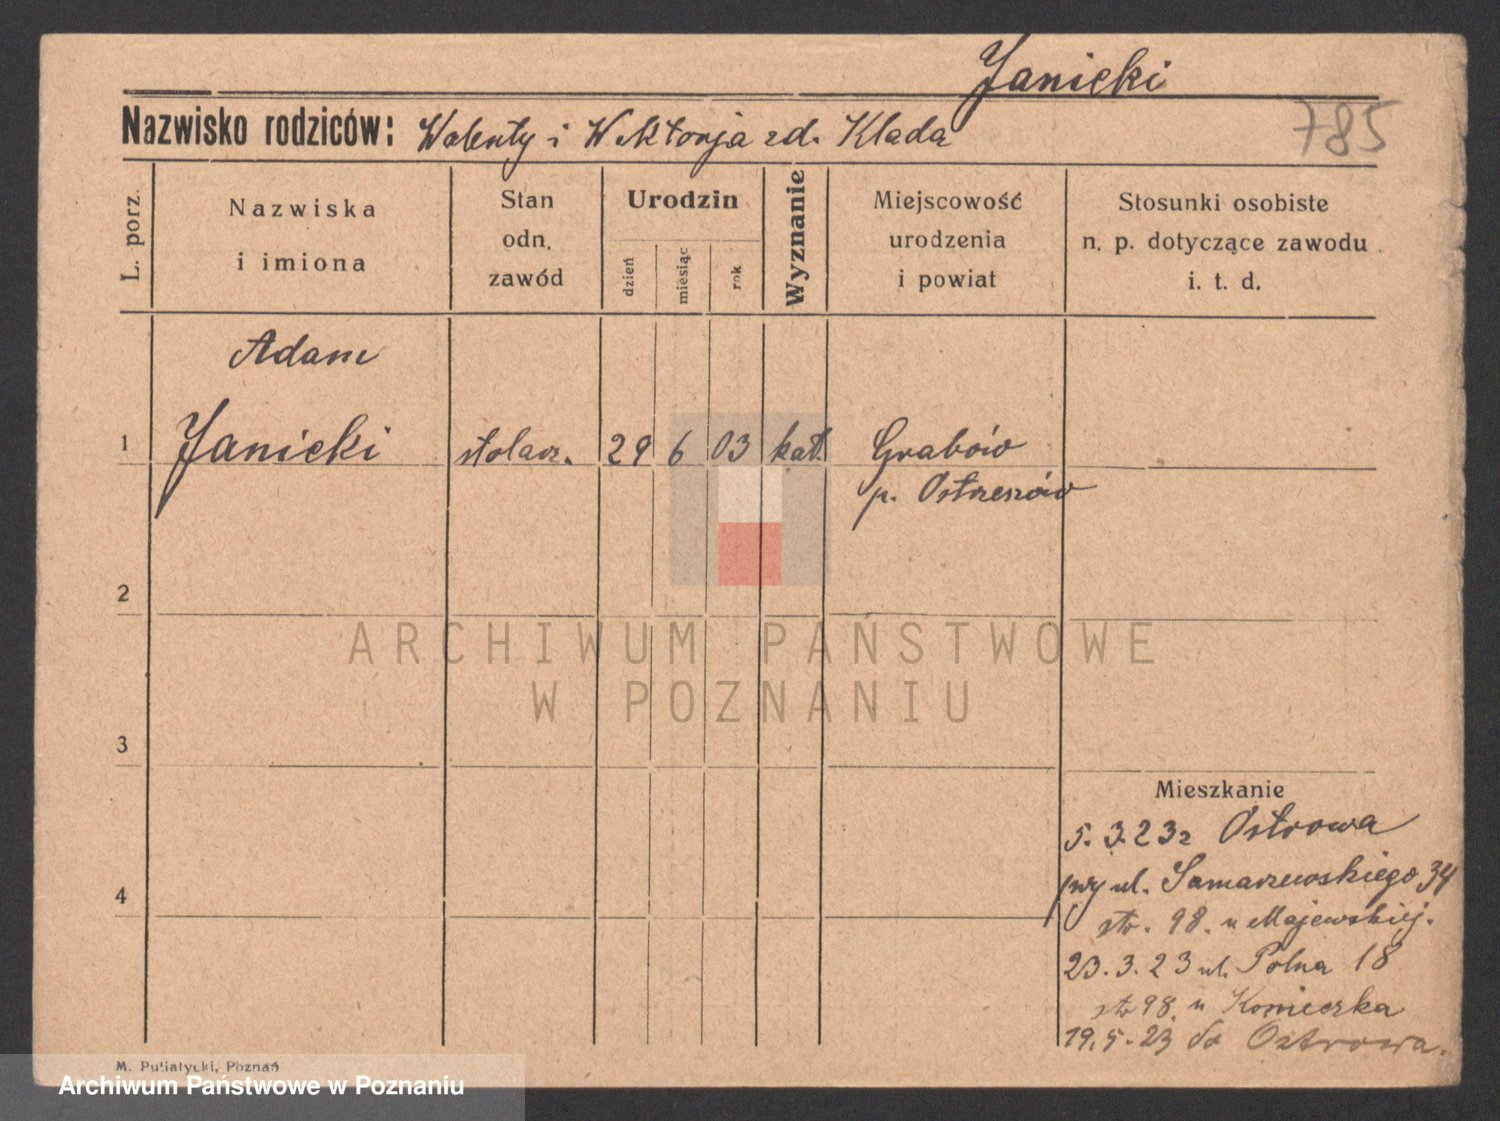 Janicki
785
Nazwisko rodziców: Walenty i Wiktorja zd. Klada
L. porz.
Nazwiska
i imiona
Stan
odn.
zawód
Urodzin
dzień
miesiąc
rok
Wyznanie
Miejscowość
urodzenia
i powiat
Stosunki osobiste
n. p. dotyczące zawodu
i. t. d.
Adam
1 Janicki stolarz. 29 6 03 kat. Grabów
p. Ostrzeszów
2
ARCHIWUM PAŃSTWOWE
W POZNANIU
3
Mieszkanie
5.3.23 z Ostrowa
przy ul. Samarzewskiego 34
str. 98. u Majewskiej.
4
23.3.23 ul. Polna 18
str 98. u Konieczka
19.5.23 do Ostrowa.
M. Putiatycki, Poznań
Archiwum Państwowe w Poznaniu